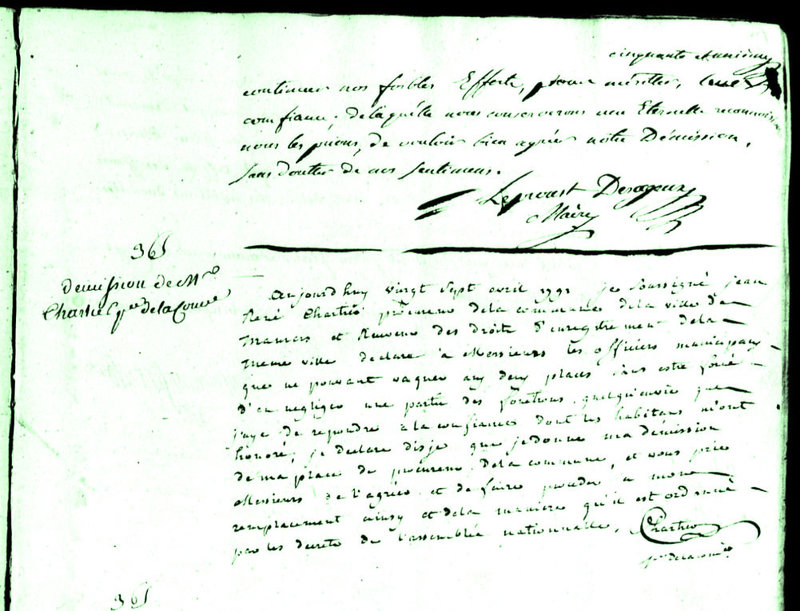 cinquante et unieme
continuer nos foibles Efforts, pour meriter, leur
confiance; de laquelle nous conserverons une Eternelle reconnoissance
nous les prions, de vouloir bien agréer notre Démission,
sans douter de nos sentimens.
Leproust Desageux
Maire
361
démission de Mr
Chartié pr de la Comne
Aujourdhuy vingt sept avril 1791 je soussigné jean
René Chartié procureur de la commune de la ville de
Mamers et Receveur des droits d'enregistrement de la
meme ville declare à Messieurs les officiers municipaux
que ne pouvant vaquer aux deux places sans estre forcé
d'en negliger une partie des fonctions, quelqu'envie que
j'aye de repondre a la confiance dont les habitans m'ont
honoré; je declare disje que je donne ma démission
de ma place de procureur de la commune, et vous prie
Messieurs de l'agréer et de faire proceder a mon
remplacement ainsy et de la maniere qu'il est ordonné
par les decrets de l'assemblée nationnalle. Chartié
pr de la comne
361